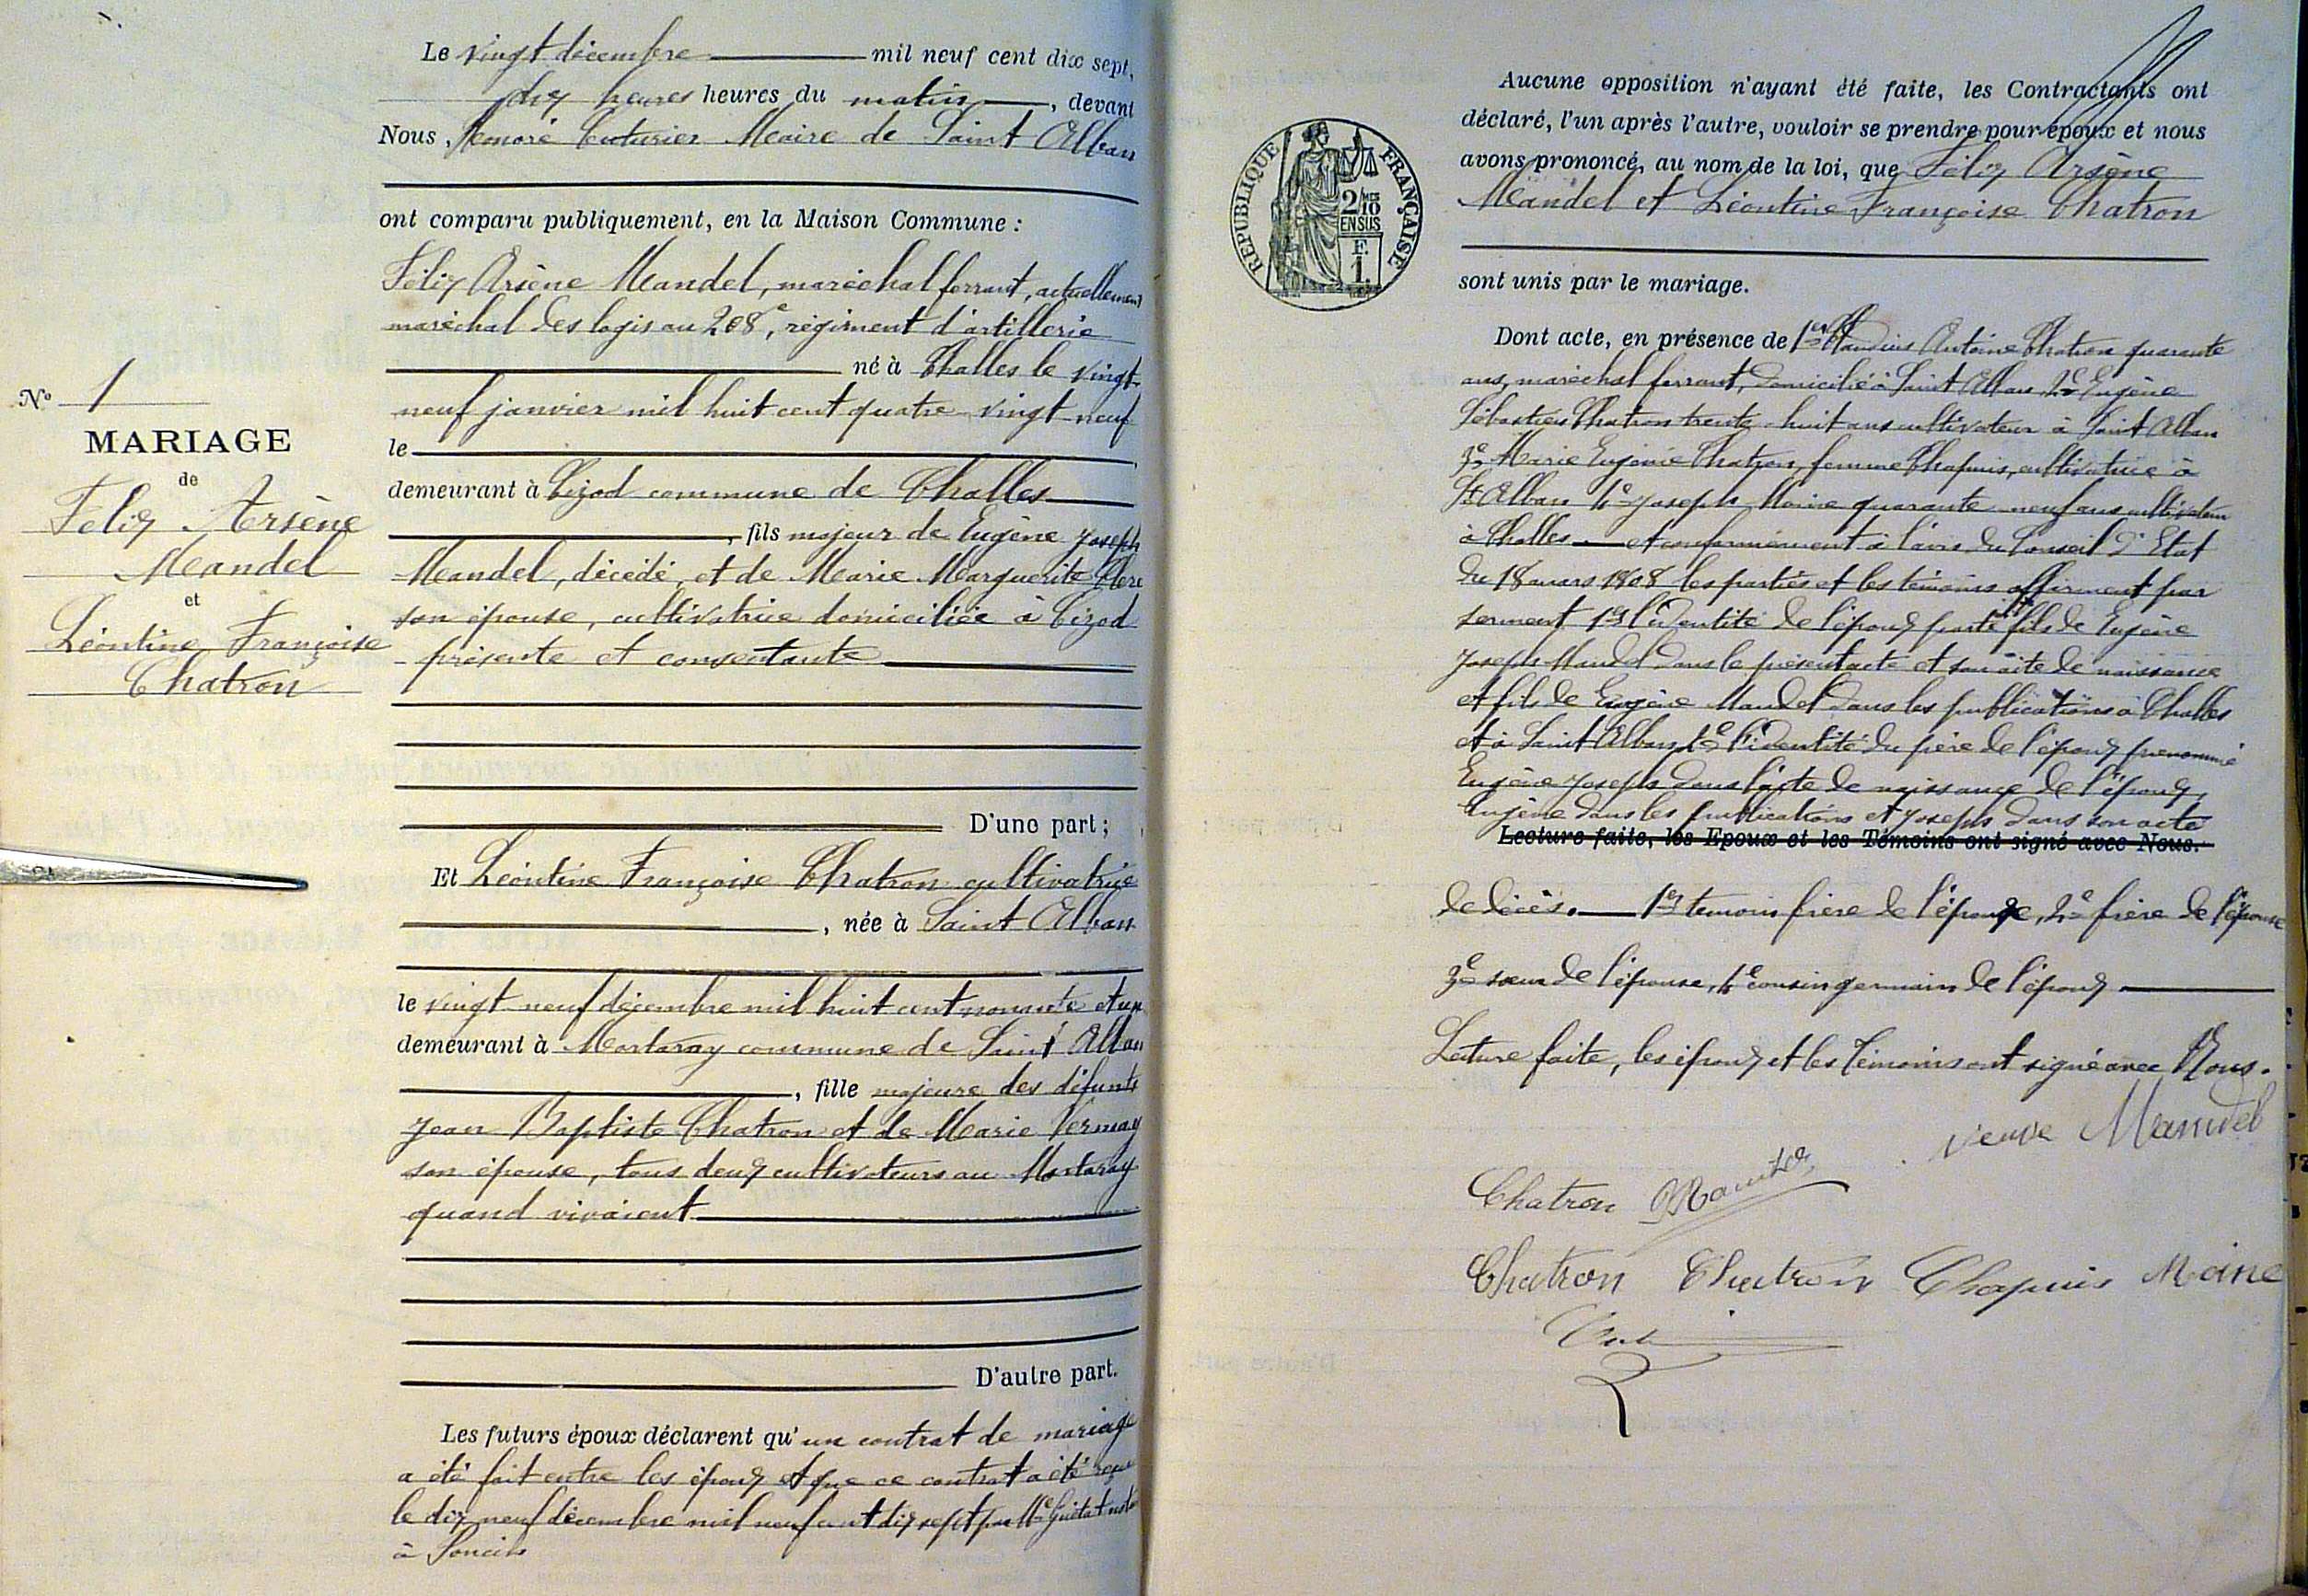 Le vingt décembre mil neuf cent dix sept,
dix heures heures du matin, devant
Nous, Honoré Couturier Maire de Saint Alban
ont comparu publiquement, en la Maison Commune :
Félix Arsène Mandel, maréchal ferrant, actuellement
maréchal des logis au 208e, régiment d'artillerie
né à Challes le vingt-
neuf janvier mil huit cent quatre-vingt-neuf
le
demeurant à Cizod commune de Challes
, fils majeur de Eugène Joseph
Mandel, décédé, et de Marie Marguerite
son épouse, cultivatrice domiciliée à Cizod
présente et consentante
D'une part ;
Et Léontine Françoise Chatron cultivatrice
, née à Saint Alban
le vingt-neuf décembre mil huit cent nonante et un
demeurant à Mortaray commune de Saint Alban
, fille majeure des défunts
Jean Baptiste Chatron et de Marie Vernay
son épouse, tous deux cultivateurs au Mortaray
quand vivaient
D'autre part.
Les futurs époux déclarent qu'un contrat de mariage
a été fait entre les époux et que ce contrat a été reçu
le dix neuf décembre mil neuf cent dix sept par Me Guétat
à Poncin
No 1
MARIAGE
de
Felix Arsène
Mandel
et
Léontine Françoise
Chatron
REPUBLIQUE FRANÇAISE
2/10 MES
EN SUS
F.
1.
Aucune opposition n'ayant été faite, les Contractants ont
déclaré, l'un après l'autre, vouloir se prendre pour époux et nous
avons prononcé, au nom de la loi, que Félix Arsène
Mandel et Léontine Françoise Chatron
sont unis par le mariage.
Dont acte, en présence de 1er Claudius Antoine Chatron quarante
ans, maréchal ferrant, domicilié à Saint Alban, 2e Eugène
Sébastien Chatron trente-huit ans cultivateur à Saint Alban
3e Marie Eugénie Chatron, femme Chapuis, cultivatrice à
St Alban 4e Joseph Moine quarante-neuf ans cultivateur
à Challes et conformément à l'avis du Conseil d'Etat
du 18 mars 1808 les parties et les témoins affirment par
serment 1er l'identité de l'époux porté fils de Eugène
Joseph Mandel dans le présent acte et son acte de naissance
et fils de Eugène Mandel dans les publications à Challes
et à Saint Alban 2e l'identité du père de l'époux prenommé
Eugène Joseph dans l'acte de naissance de l'époux,
Eugène dans les publications et Joseph dans son acte
Lecture faite, les Epoux et les Témoins ont signé avec Nous.
de décès. 1er temoin frère de l'épouse, 2e frère de l'épouse
3e sœur de l'épouse, 4e cousin germain de l'époux
Lecture faite, les époux et les témoins ont signé avec Nous.
veuve Mandel
Chatron Mandel
Chatron Chatron Chapuis Moine